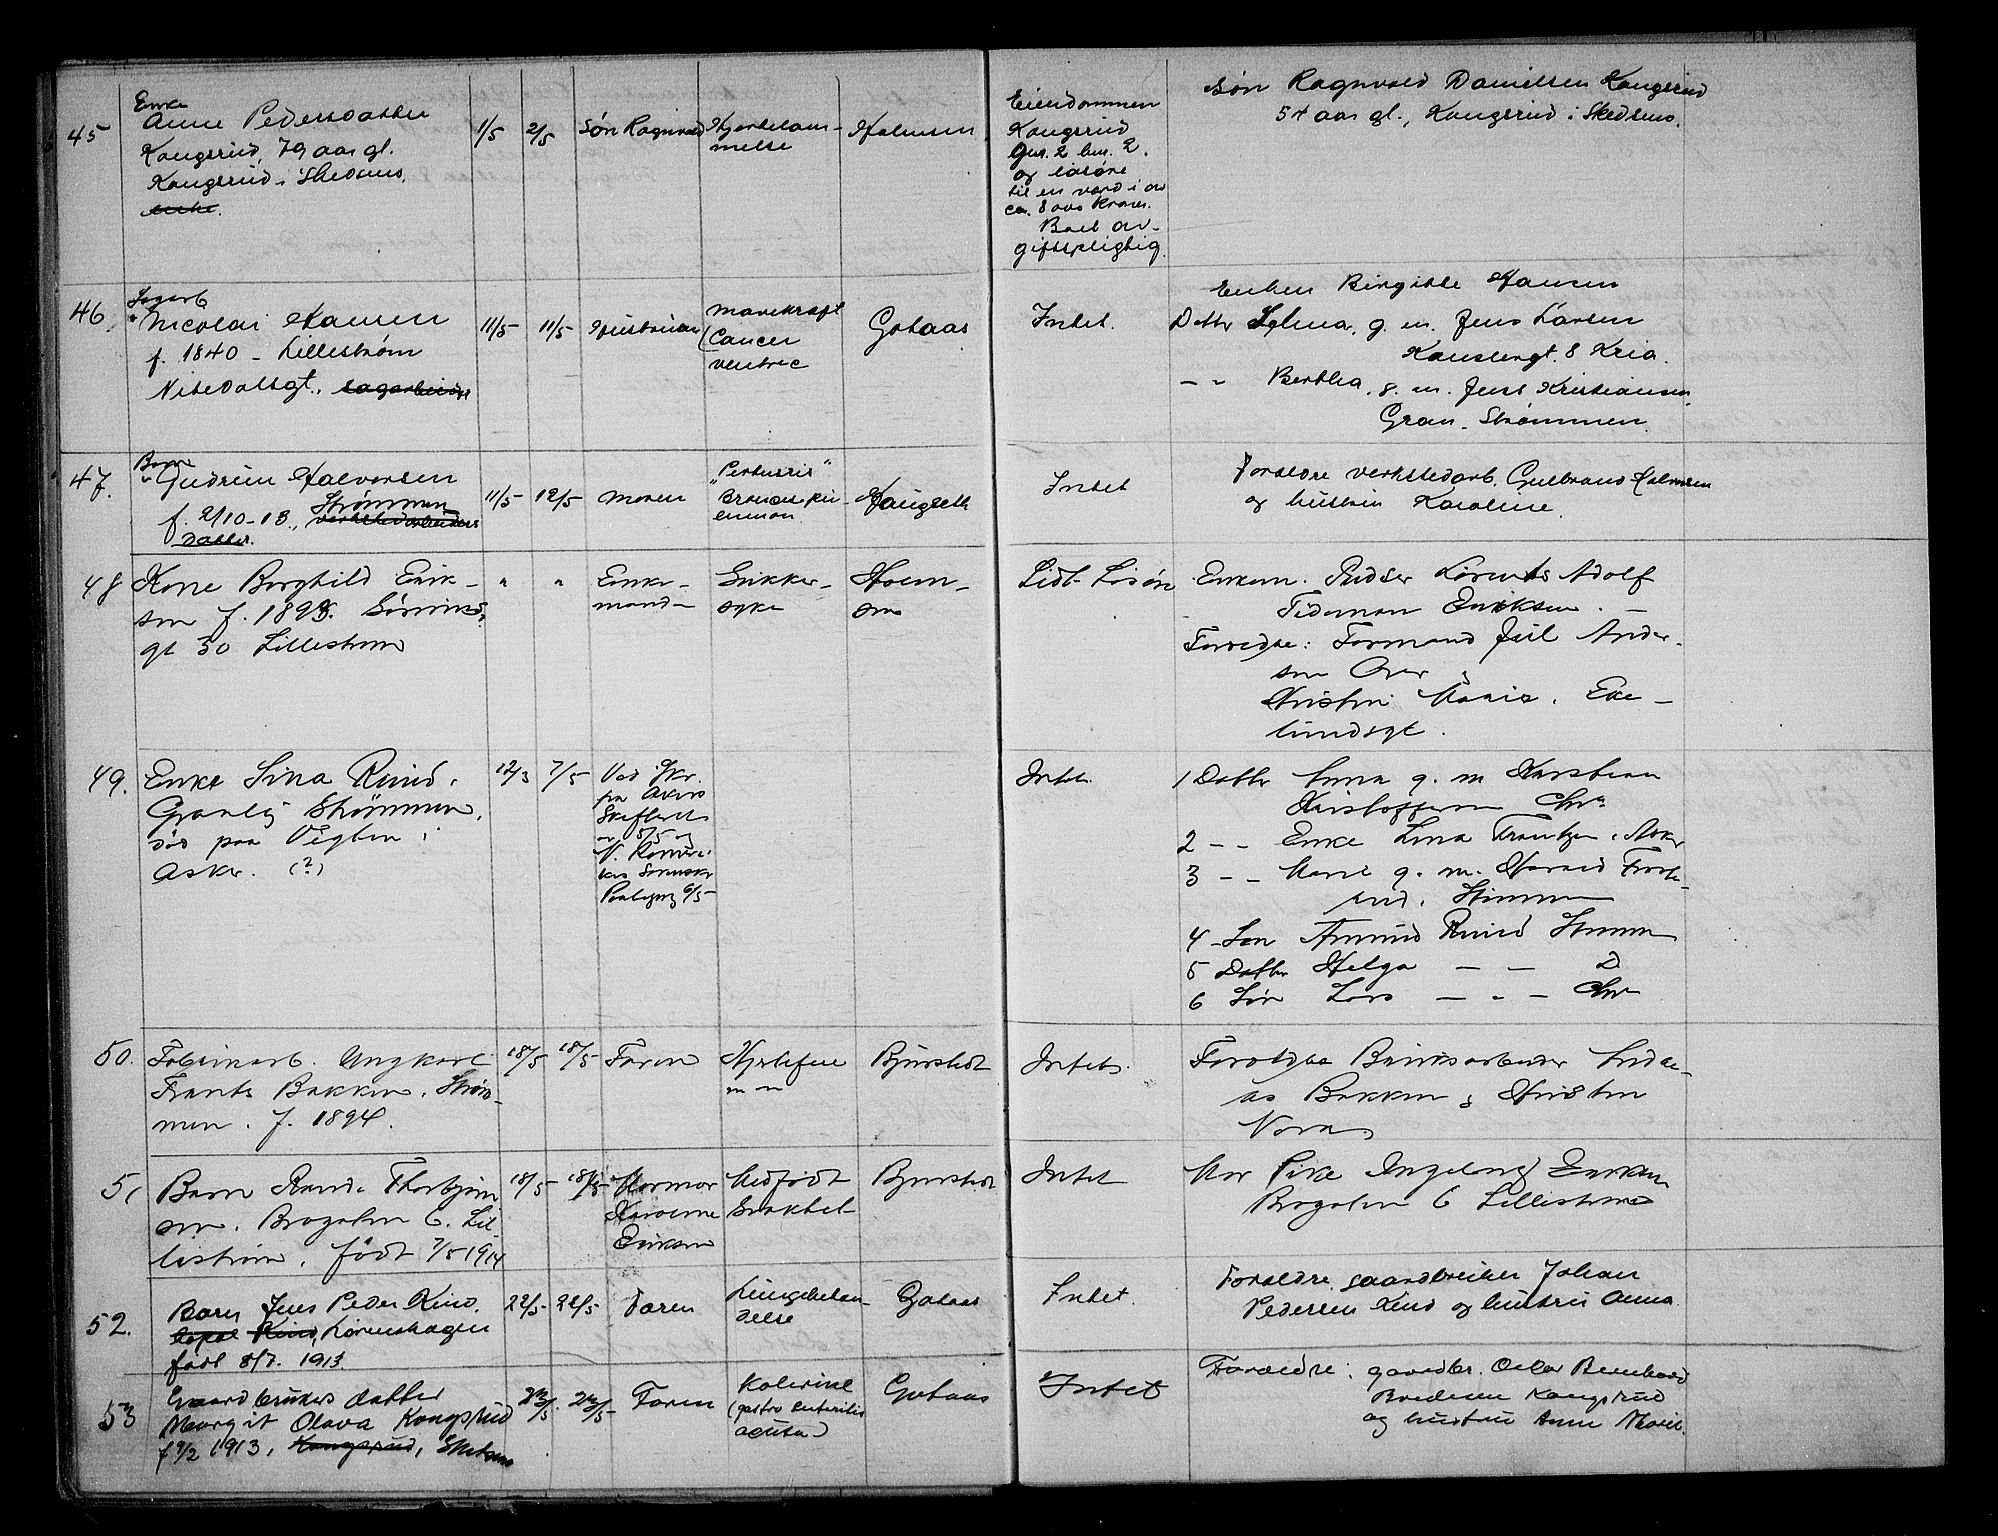 45
Enke
Anne Pedersdatter
Kongsrud, 79 aar gl.
Kongsrud i Skedsmo.
enke.
1/5
2/5
Søn Ragnvald
Hjertelam-
melse
Holmsen
Eiendommen
Kongsrud
Gnr. 2 bnr. 2.
og løsøre
til en værd i av
ca. 8000 Kroner.
Boet av-
giftspligtig.
Søn Ragnvald Danielsen Kongsrud
54 aar gl., Kongsrud i Skedsmo.
46.
Sagarb
Nicolai Hansen
f. 1840 - Lillestrøm
Nitedalsgt., sagarbeider
11/5
11/5
Hustruen
Mavekræft
(Cancer
ventric
Gotaas
Intet.
Enken Birgitte Hansen
Datter Selma, g. m. Jens Larsen
8 Kria.
-"- Berthea, g. m. Jens Kristiansen,
Gran. Strømmen.
47.
Barn
Gudrun Halvorsen
Strømmen
f. 2/10-13., verkstedarbeiders
datter.
11/5
12/5
Moren
"Pertussis"
Haugseth
Intet
Foreldre verkstedarb. Gulbrand
og hustru Karoline.
48
Kone Borghild Erik-
sen f. 1893.
gt 30 Lillestrøm
"
"
Enke-
mand
Sukker-
syke
Holm-
sen
Lidt Løsøre
Enkem. Lorents Adolf
Tideman Eriksen. -
Foreldre: Formand Jul Ander-
sen og
Hustru Marie.
49.
Enke Lina Ruud,
Granli Strømmen,
død paa
Asker. (?)
12/3
7/5
Ved Skr.
fra Akers
Skifterett
av 5/5 og
6/5
Intet.
1 Datter Anna g. m Karstein
Kristoffersen Chra
2 -- Enke Lina Asker
3 -- Marie g. m. Harald
Strømmen
4 Søn Amund Ruud Strømmen
5 Datter Helga - - D
6 Søn Lars - " - Chra
50.
Fabrikarb. Ungkarl
Frants Bakken. Strøm-
men. f. 1894.
18/5
18/5
Faren
Hjertefeil
Bjørstedt
Intet.
Foreldre Bruksarbeider Andre-
as Bakken og Hustru
Nora
51
Barn Thorbjørn
sen. Brogaten 6. Lil
lestrøm. født 7/5 1914
18/5
18/5
Mormor
Karoline
Eriksen
Medfødt
Svakhet
Bjørstedt
Intet
Mor Pike Ingeborg Eriksen
Brogaten 6 Lillestrøm
52.
Barn Jens Peder Rud.
Rud, Lørenskogen
født 8/7. 1913
22/5
22/5
Faren
Lungebetæn-
delse
Gotaas
Intet.
Foreldre gaardbruker Johan
Pedersen Rud og hustru Anna.
53
Gaardbrukers datter
Margit Olava Kongsrud
f 9/2 1913, Kongsrud, Skedsmo
23/5
23/5
Faren
Kolerine
(gastro enteritis
acuta)
Gotaas
Intet
Foreldre: gaardbr. Oskar Bernhard
Kongsrud
og hustru Anne Marie.